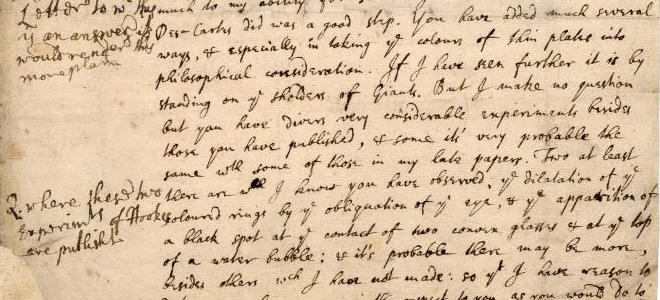 much to my ability for
Des-Cartes did was a good step. You have added much several
ways, & especially in taking yᵉ colours of thin plates into
philosophical consideration. If I have seen further it is by
standing on yᵉ sholders of Giants. But I make no question
but you have divers very considerable experiments besides
those you have published, & some it's very probable the
same wᵗʰ some of those in my late papers. Two at least
there are wᶜʰ I know you have observed, yᵉ dilatation of yᵉ
coloured rings by yᵉ obliquation of yᵉ eye, & yᵉ apparition of
a black spot at yᵉ contact of two convex glasses & at yᵉ top
of a water bubble; & it's probable there may be more,
besides others wᶜʰ I have not made: so yᵗ I have reason to
to you as you would do to
Letter to wᶜʰ this
is an answer
would render this
more plain
Q. where these two
Experimᵗˢ of Hooke
are publisht